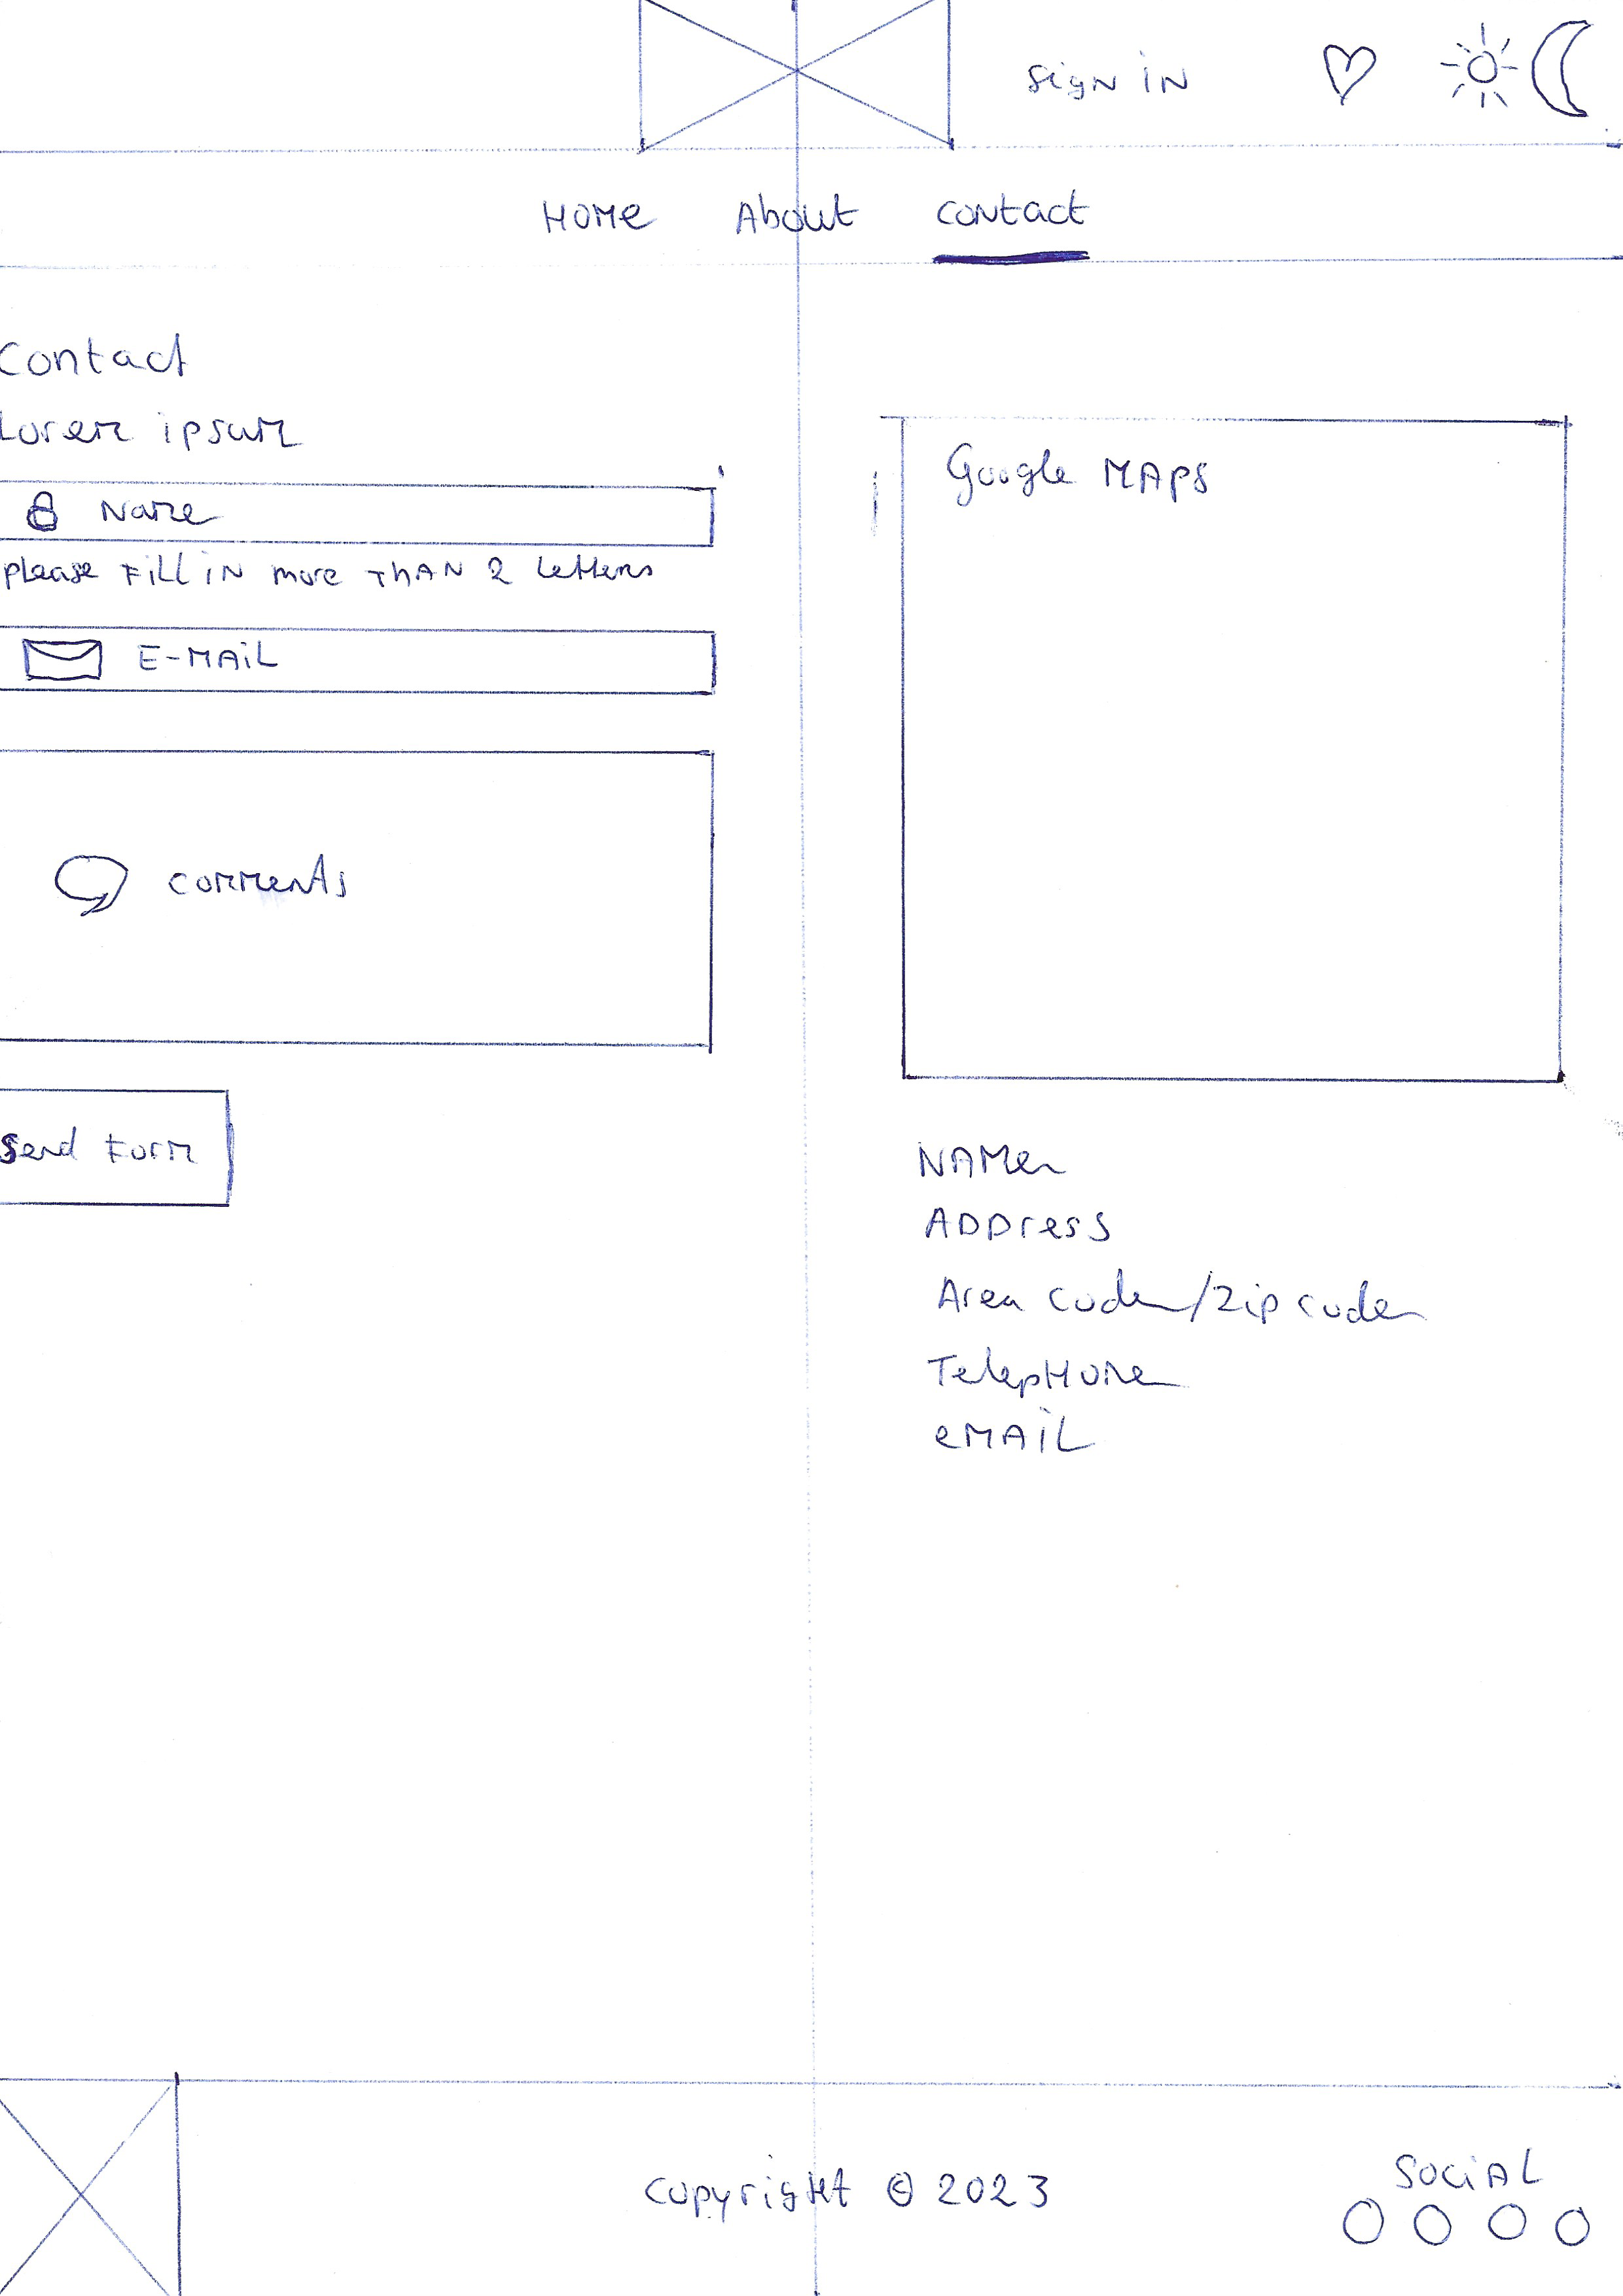 sign in
Home About contact
Contact
Lorem ipsum
Name
please Fill in more ThAN 2 letters
E-MAiL
comments
Send Form
Google MAPS
NAMe
ADDress
Area code/Zip code
TelepHone
eMAiL
copyright © 2023
SociAL